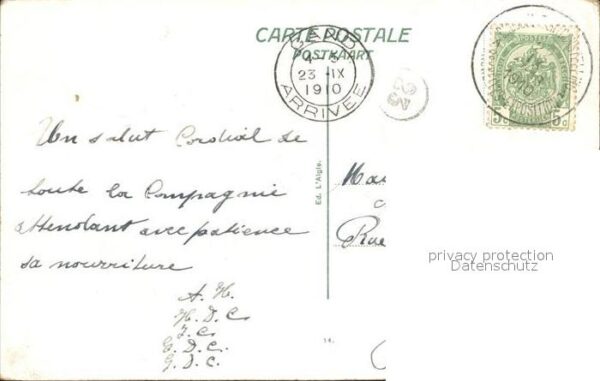 CARTE POSTALE
POSTKAART
4-5
23 IX
1910
ARRIVÉE
Un salut Cordial de
toute la Compagnie
attendant avec patience
sa nourriture
A. H.
H. D. C.
J. C.
E. D. C.
G. D. C.
Ed. L'Aigle.
14.
Rue
5c 5c
1910
privacy protection
Datenschutz